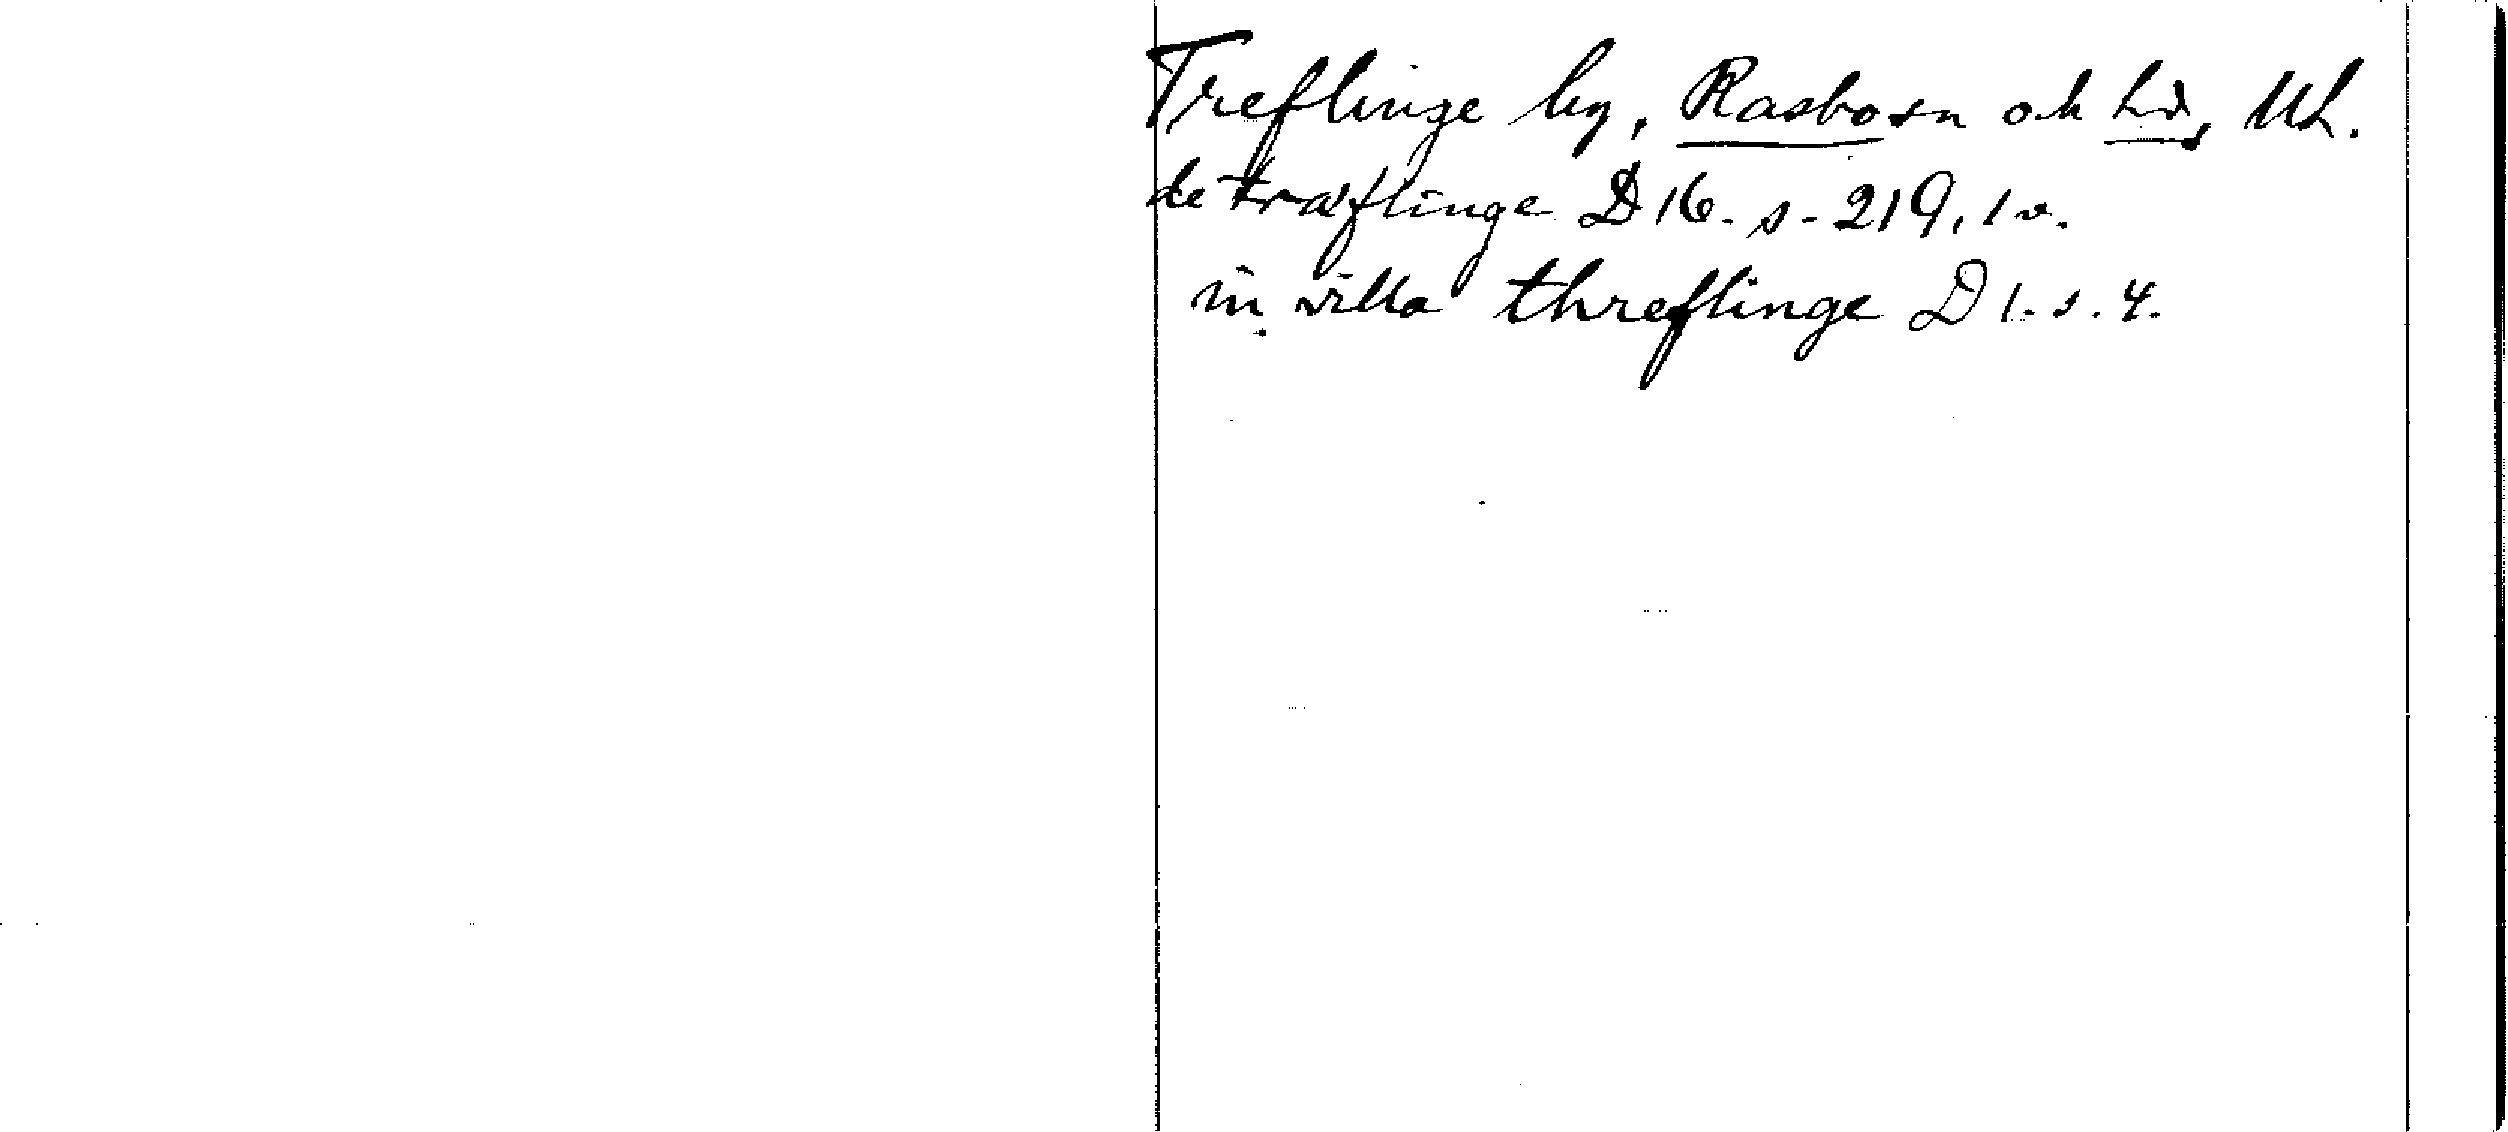 Treflinge by, Rasbo sn och hd, Ul.
de træflinge D 16. s. 219, 1 v.
in villa threflinge D 1. s. 4.